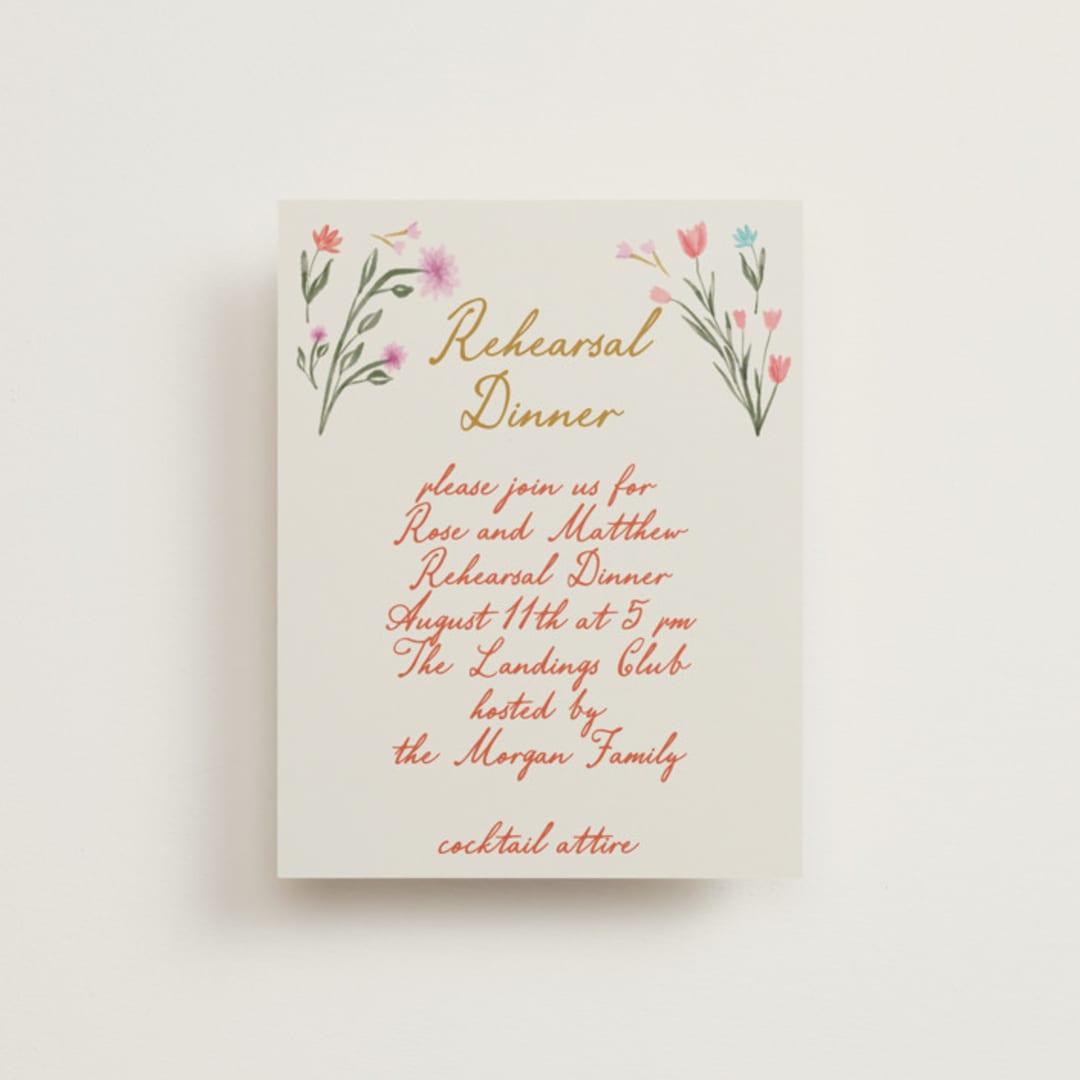 Rehearsal
Dinner
please join us for
Rose and Matthew
Rehearsal Dinner
August 11th at 5 pm
The Landings Club
hosted by
the Morgan Family
cocktail attire